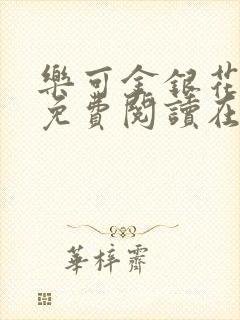 樂可金銀花
免費閱讀在
華梓齋